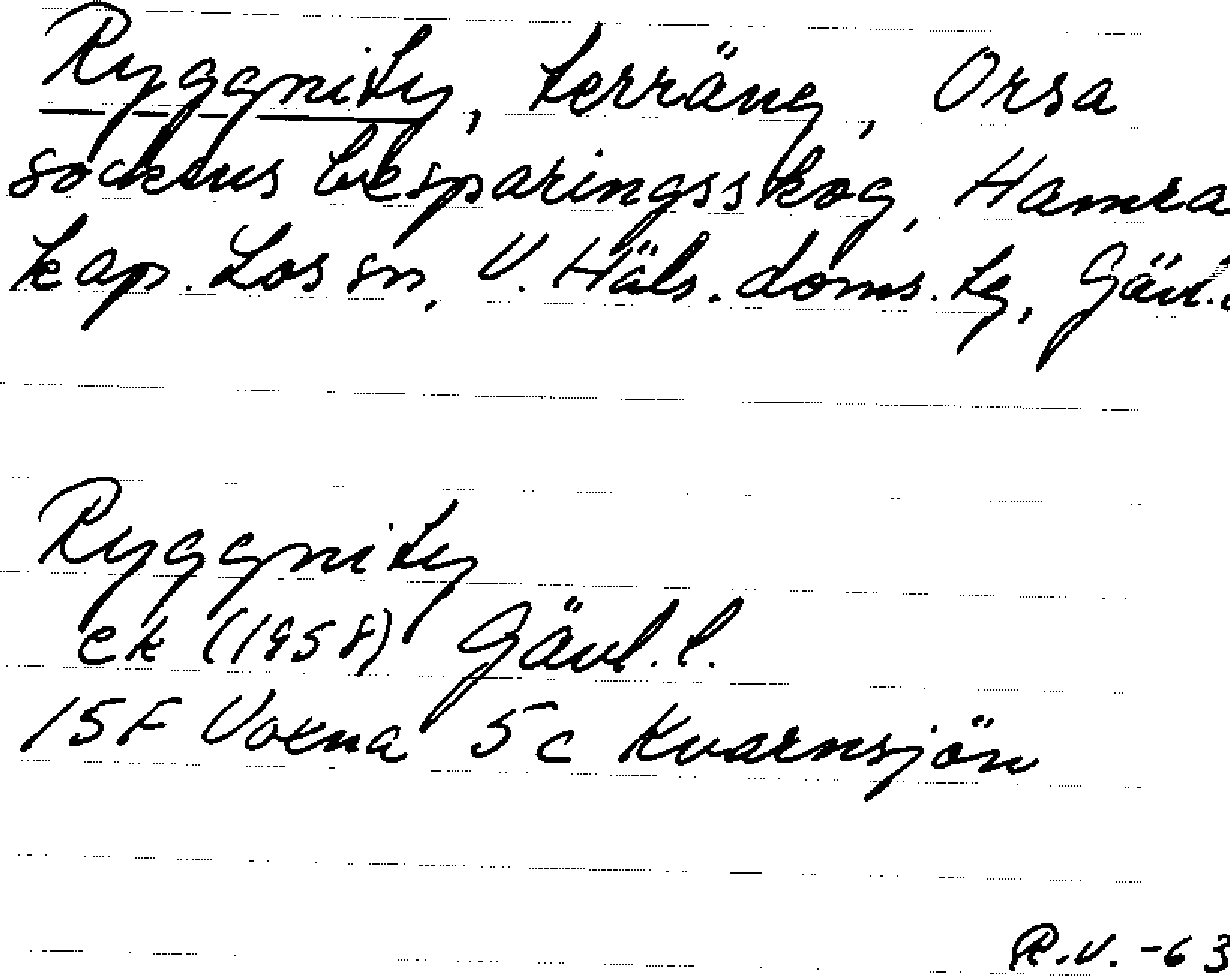 Ryggnity, terräng, Orsa
sockens besparingsskog, Hamra
kap. Los sn, V. Häls. doms. tg, Gävl.l
Ryggnity
ek (1958) Gävl. l.
15F Voxna 5c Kvarnsjön
R.V. -63